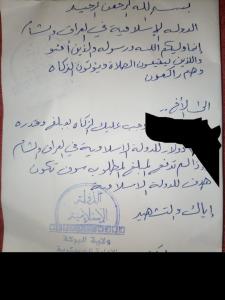 بسم الله الرحمن الرحيم
الدولة الإسلامية في العراق والشام
إنما وليكم الله ورسوله والذين آمنوا
والذين يقيمون الصلاة ويؤتون الزكاة
وهم راكعون
إلى الأخ ..
عليك الزكاة لمبلغ وقدره
دولار للدولة الإسلامية في العراق والشام
وإذا لم تدفع المبلغ المطلوب سوف تكون
هدف للدولة الإسلامية
إياك والتشهير
الدولة
الإسلامية
ولاية البركة